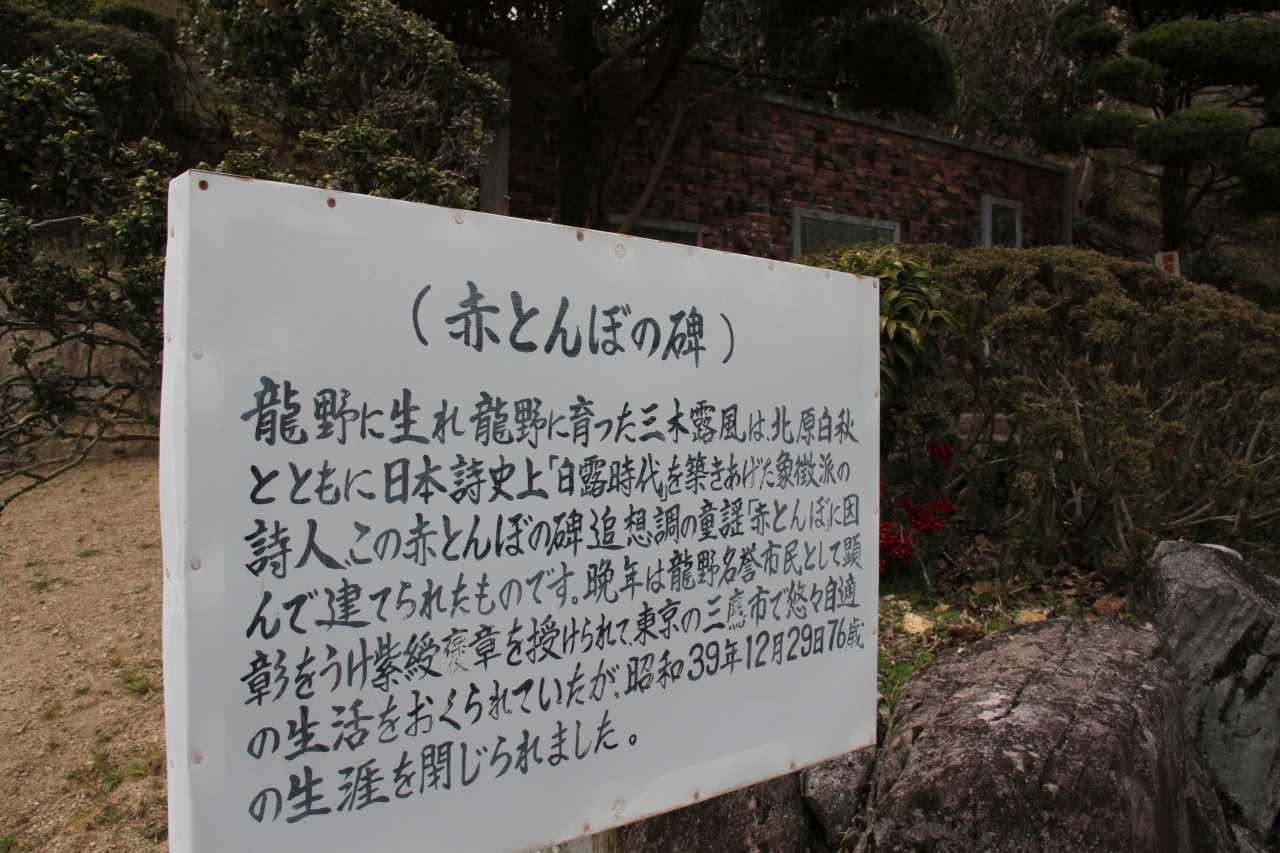 （赤とんぼの碑）
龍野に生れ龍野に育った三木露風は、北原白秋
とともに日本詩史上「白露時代」を築きあげた象徴派の
詩人、この赤とんぼの碑追想調の童謡「赤とんぼ」に因
んで建てられたものです。晩年は龍野名誉市民として顕
彰をうけ紫綬褒章を授けられて、東京の三鷹市で悠々自適
の生活をおくられていたが、昭和39年12月29日76歳
の生涯を閉じられました。